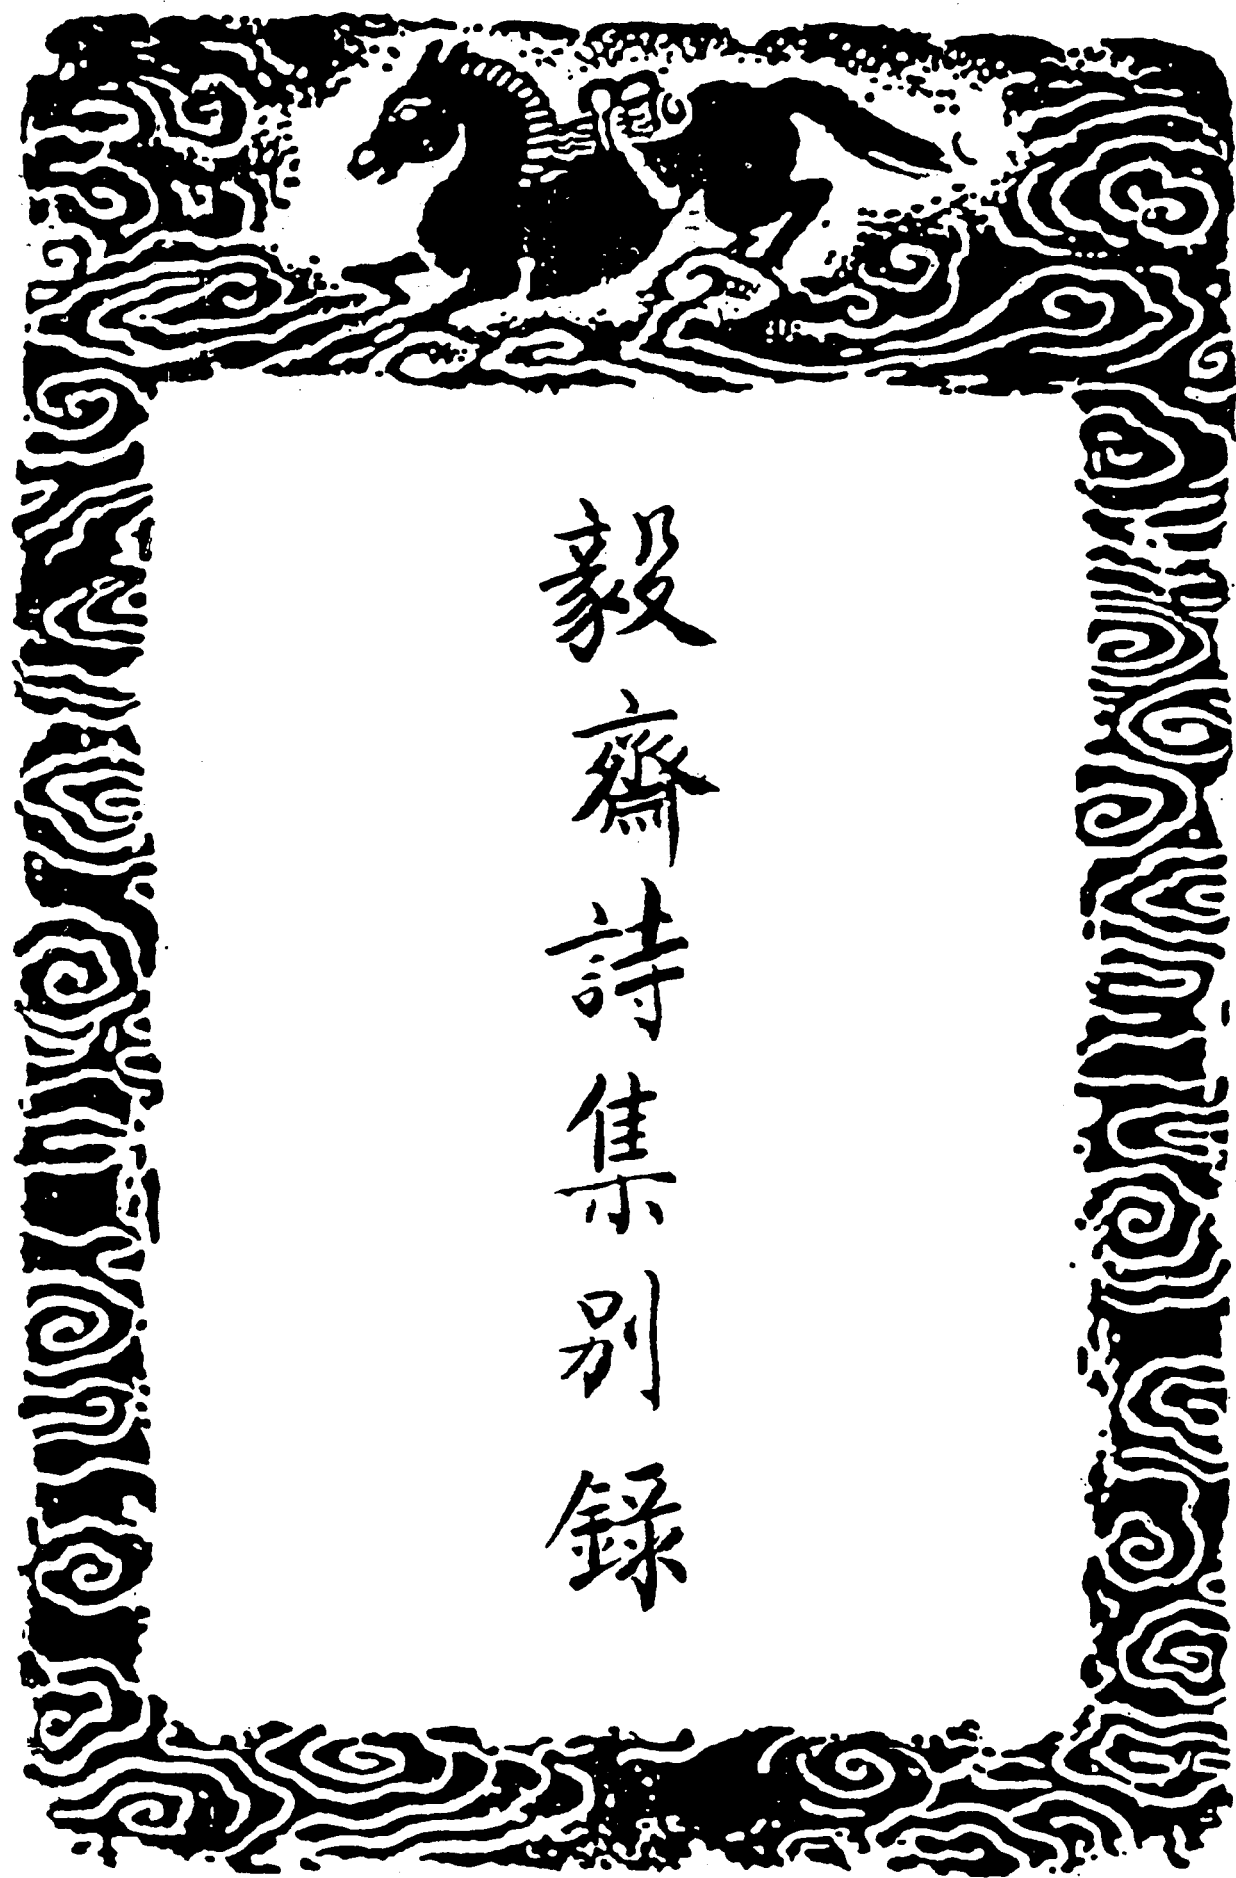 毅齋詩集別錄